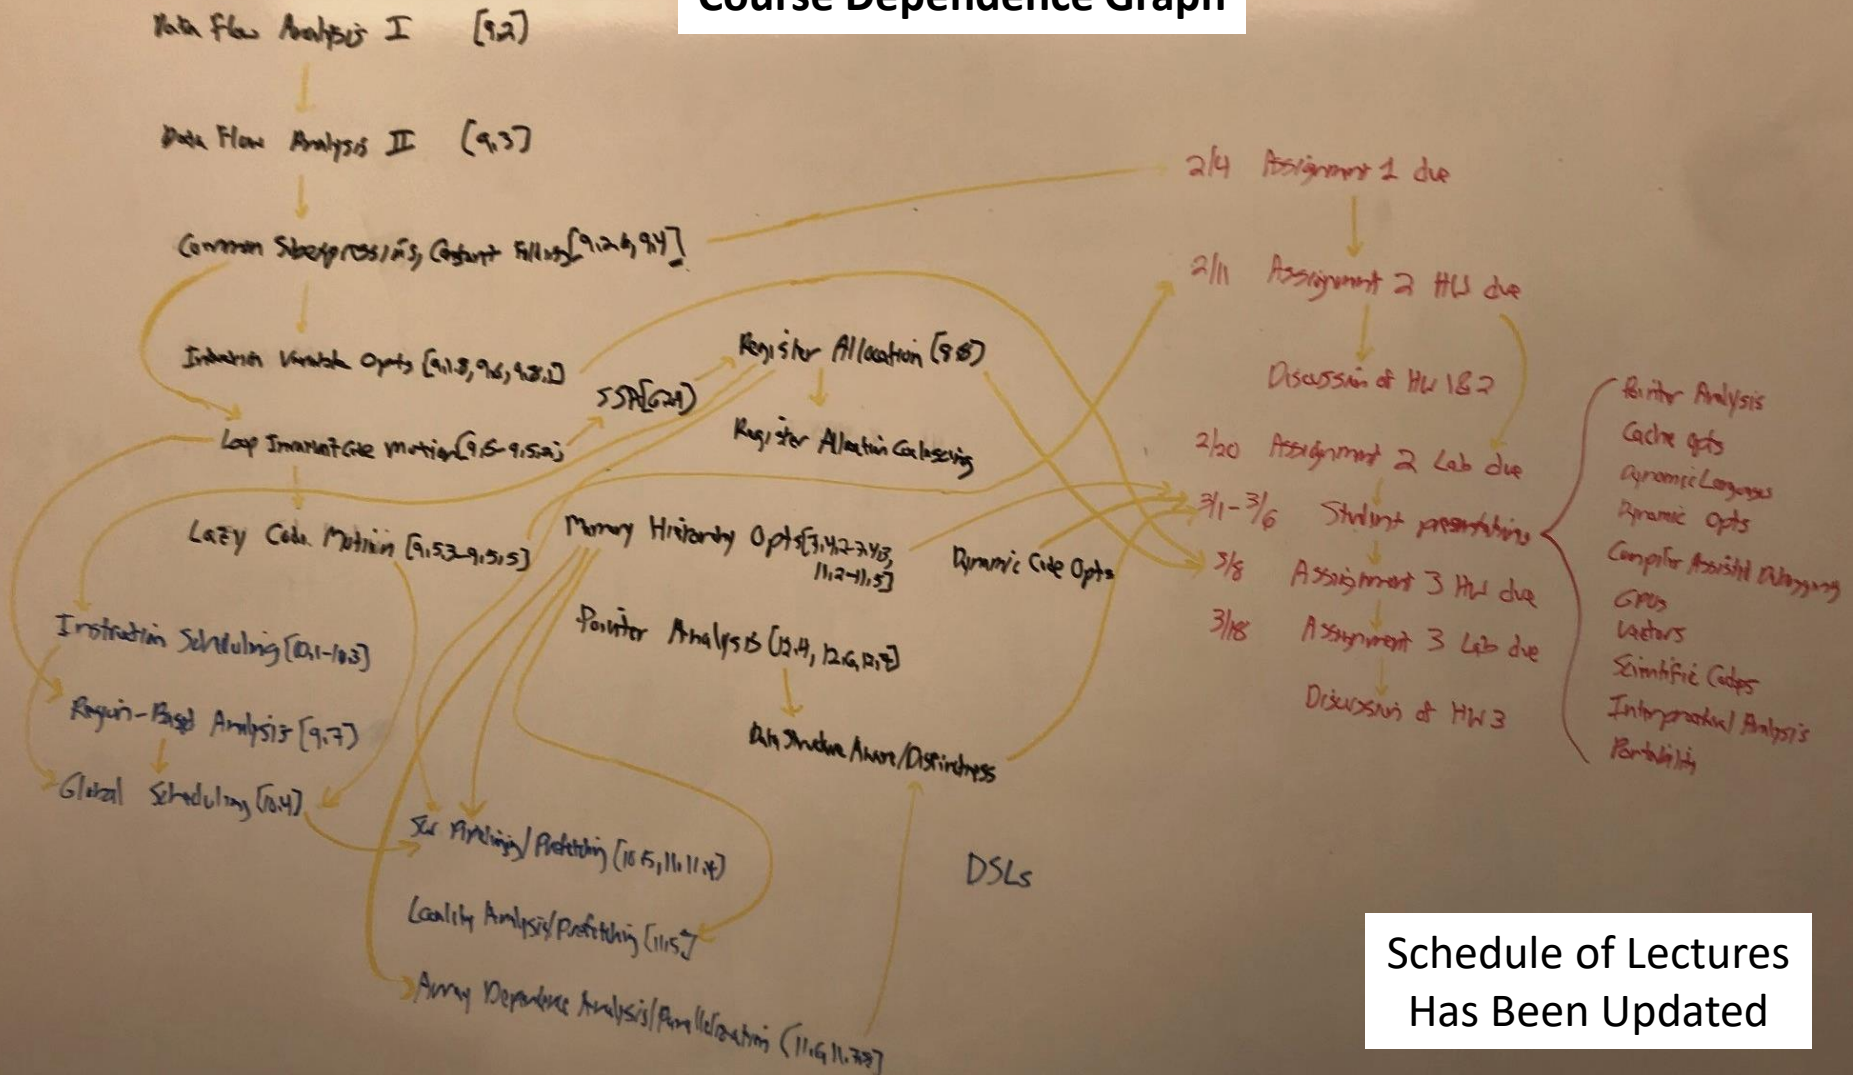 Course Dependence Graph
Data Flow Analysis I [9.2]
Data Flow Analysis II [9.3]
Common Subexpressions, Constant Folding [9.2.6, 9.4]
Induction Variable Opts [9.1.8, 9.6, 9.8.1]
SSA [6.2.4]
Loop Invariant Code Motion [9.5-9.5.2]
Lazy Code Motion [9.5.3-9.5.5]
Register Allocation [8.8]
Register Allocation Coalescing
Memory Hierarchy Opts [7.4.2-7.4.3,
11.2-11.5]
Dynamic Code Opts
Pointer Analysis [12.4, 12.6, 12.7]
Data Structure Aware/Disjointness
Instruction Scheduling [10.1-10.3]
Region-Based Analysis [9.7]
Global Scheduling [10.4]
SW Pipelining/Prefetching [10.5, 11.11.4]
Locality Analysis/Prefetching [11.5]
Array Dependence Analysis/Parallelization
DSLs
2/4 Assignment 1 due
2/11 Assignment 2 HW due
Discussion of HW 1&2
2/20 Assignment 2 Lab due
3/1-3/6 Student presentations
3/8 Assignment 3 HW due
3/18 Assignment 3 Lab due
Discussion of HW3
Pointer Analysis
Cache opts
Dynamic Languages
Dynamic Opts
Compiler Assisted Debugging
GPUs
Vectors
Scientific Codes
Interprocedural Analysis
Portability
Schedule of Lectures
Has Been Updated